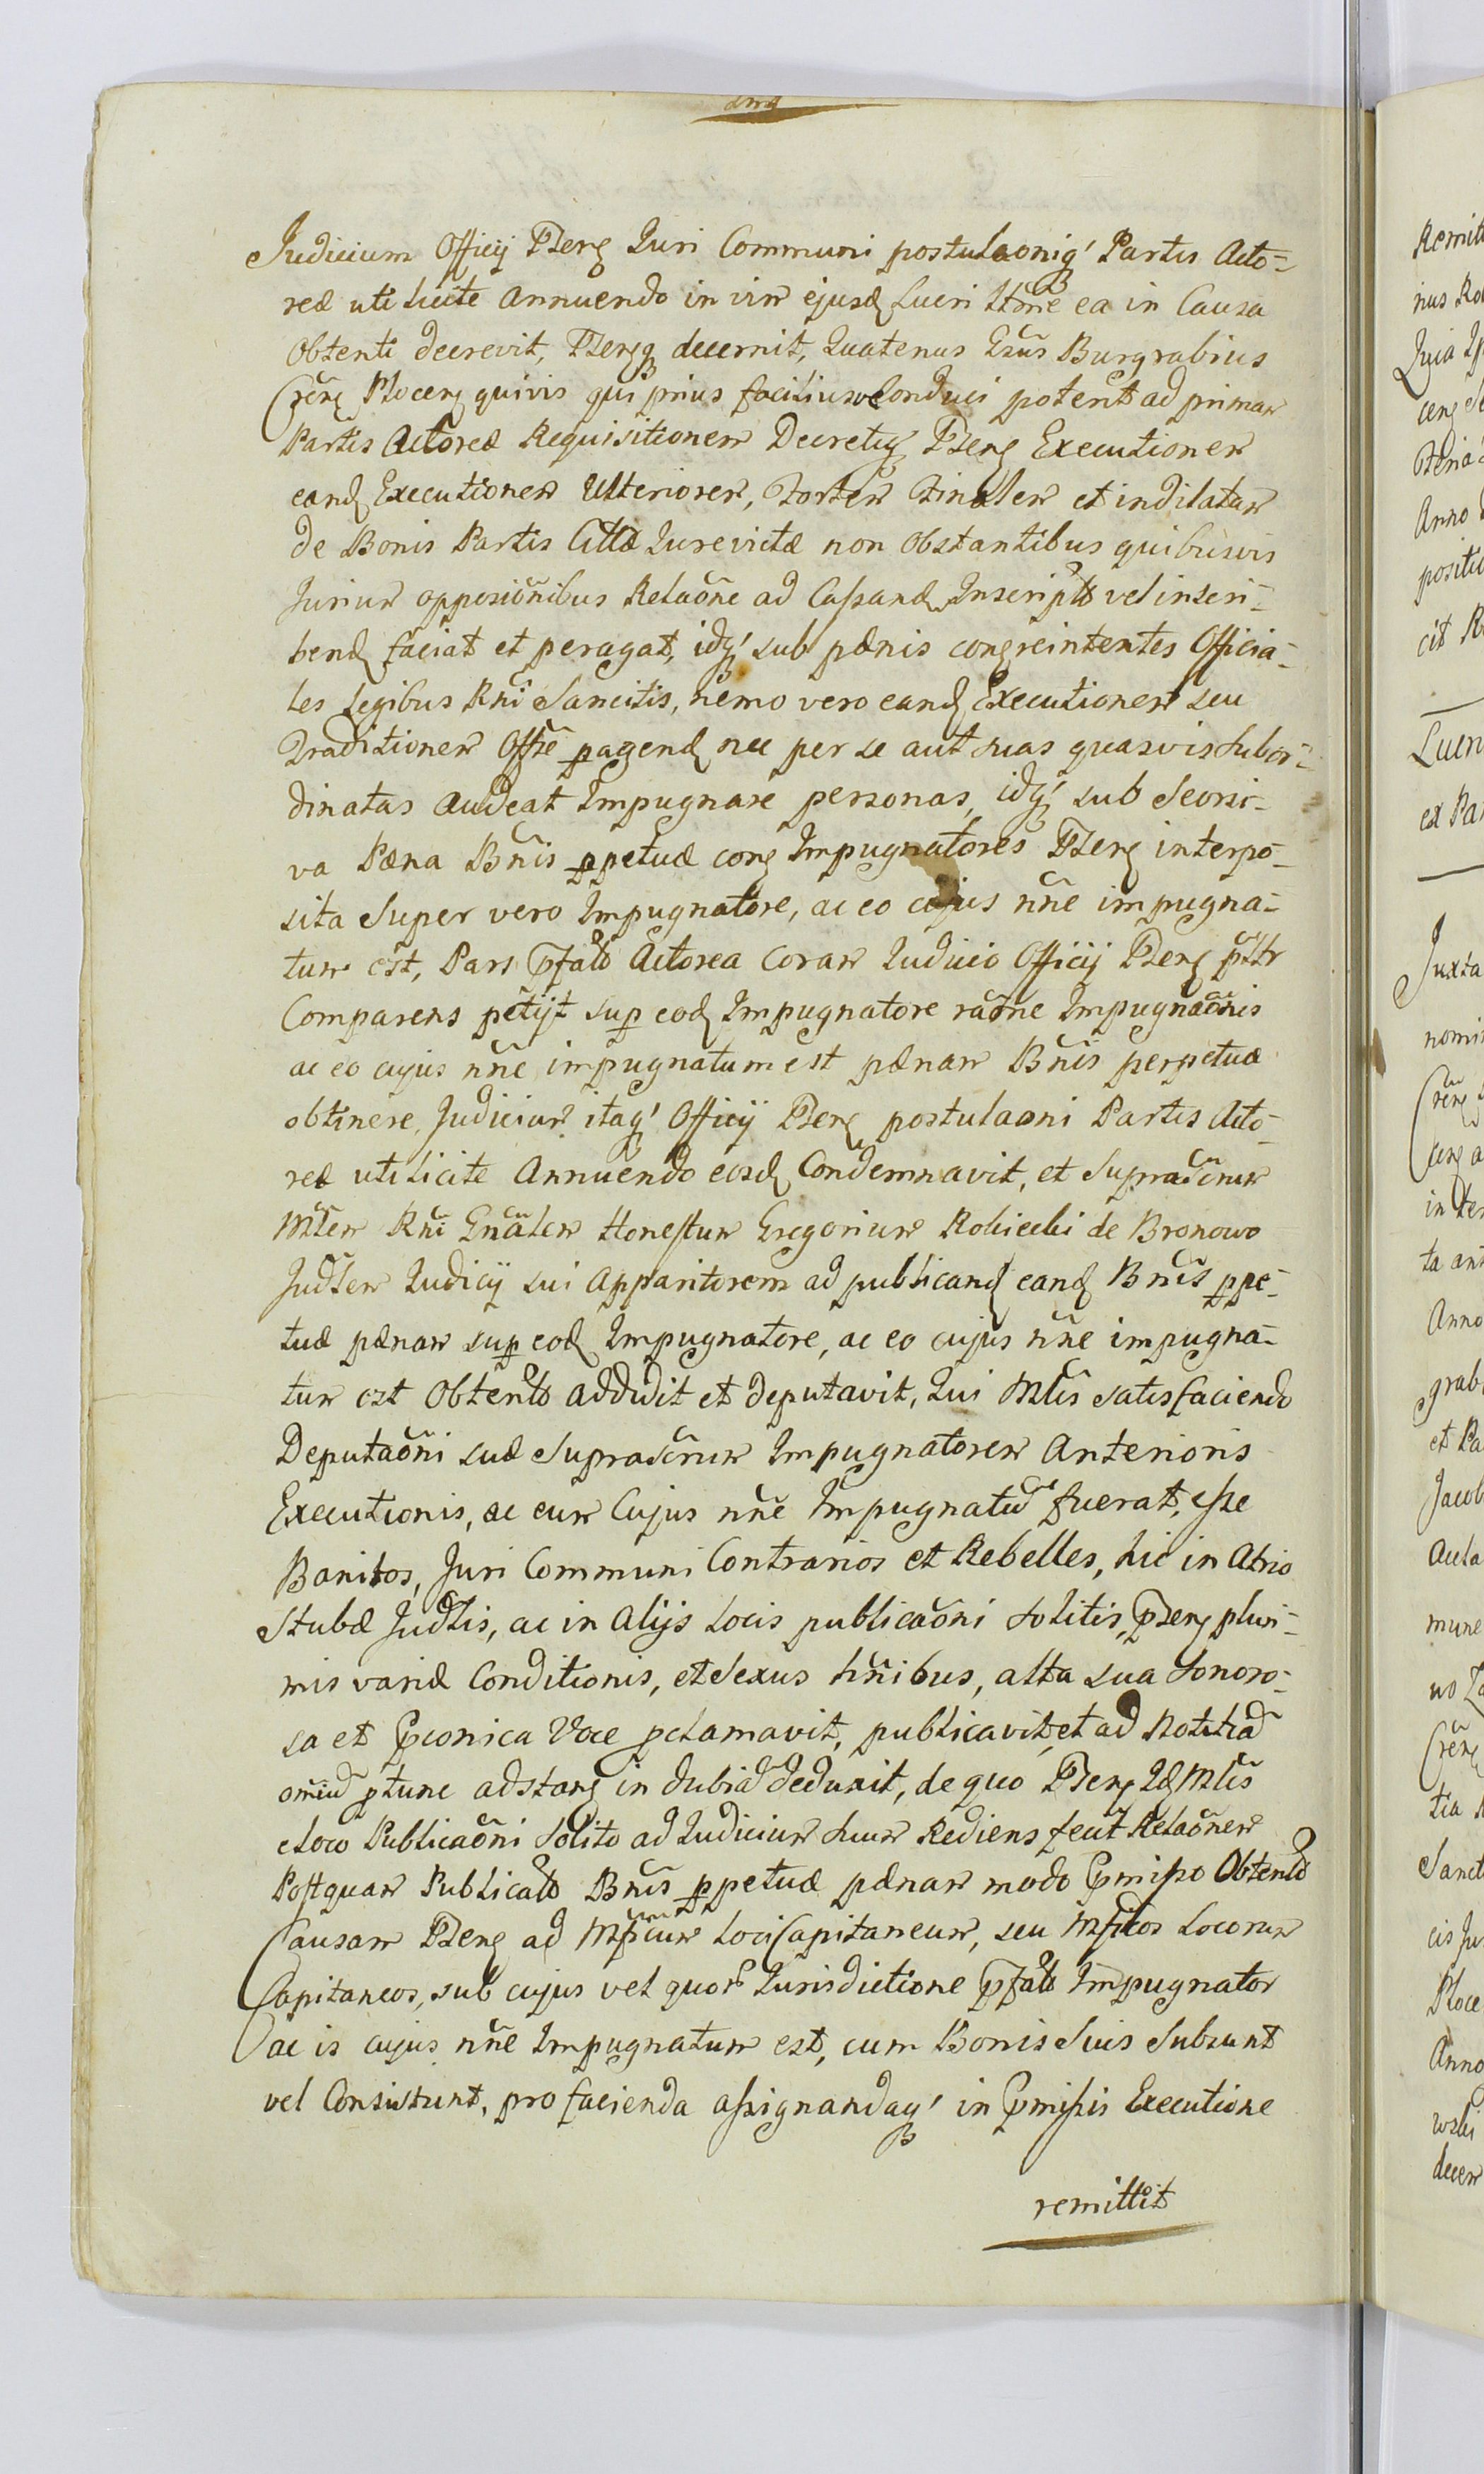 Judicium Officij Pserę Juri Communi postulaoniq́ Partis Acto-
reæ uti licite annuendo in vim ejusđ Lucri Ittõne ea in Causa
Obtenti decrevit, Pserq decernit, Quatenus Gsũs Burgrabius
Crẽn Plocen quivis qui prius faciliusve Conduci poterit ad primam
Partis Actoreæ Requisitionem Decretiq Psen Executionem
eanđ Executionem Ulteriorem, Fortem Finalem et indilatam
de Bonis Partis Cittæ Jurevictæ non Obstantibus quibusvis
Jurium opposiõnibus Relaõne ad Cassanđ Inscripto vel inscri-
benđ faciat et peragat, idq́ sub pænis conreintentes Officia-
les Legibus Rnĩ Sancitis, nemo vero eanđ Executionem seu
Traditionem Offsẽ pagenđ nec per se aut suas quasvis Subor-
dinatas audeat Impugnare personas, idq́ sub Seorsi-
va Pæna Bnĩs ppetuæ con Impugnatores Psen interpo-
sita Super vero Impugnatore, ac eo cujus nñe impugna-
tum est, Pars Pfato Actorea Coram Judicio Officij Psen psttr
Comparens petijt sup eođ Impugnatore raõne Impugnaõnis
ac eo cujus nñe impugnatum est pænam Bnĩs perpetuæ
obtinere, Judicium itaq́ Officij Psen postulaoni Partis Acto-
reæ uti licite Annuendo eosđ Condemnavit, et Supradcrum
Mtlem Rnĩ Gnãlem Honestum Gregorium Robicchi de Bronowo
Judlem Judicij sui Apparitorem ad publicanđ eanđ Bnĩs ppe-
tuæ pænam sup eođ Impugnatore, ac eo cujus nñe impugna-
tum est Obtento addidit et deputavit, Qui Mtlis satisfaciendo
Deputaõni suæ Suprascrum Impugnatorem Anterioris
Executionis, ac eum Cujus nñe Impugnatũ fuerat, esse
Banitos, Juri Communi Contrarios et Rebelles, hic in Atrio
Stubæ Judlis, ac in Alijs Locis publicaõni Solitis, Psen pluri-
mis variæ Conditionis, et Sexus hñibus, alta sua Sonoro-
sa et Pconica Voce pclamavit, publicavit, et ad Notitiã
omiũ ptunc adstan in dubiã deduxit, de quo Psen Iđ Mtlis
e Loco Publicaõni Solito ad Judicium Suum Rediens fecit Relaõnem
Postquam Publicato Bnĩs ppetuæ pænam modo Pmisso Obtento
Causam Psen ad Mficum Loci Capitaneum, seu Mficos Locorum
Capitaneos, sub cujus vel quor Jurisdictione Pfato Impugnator
ac is cujus nñe Impugnatum est, cum Bonis Suis Subsunt
vel Consistunt, pro facienda assignandaq́ in Pmissis Executione
remittit